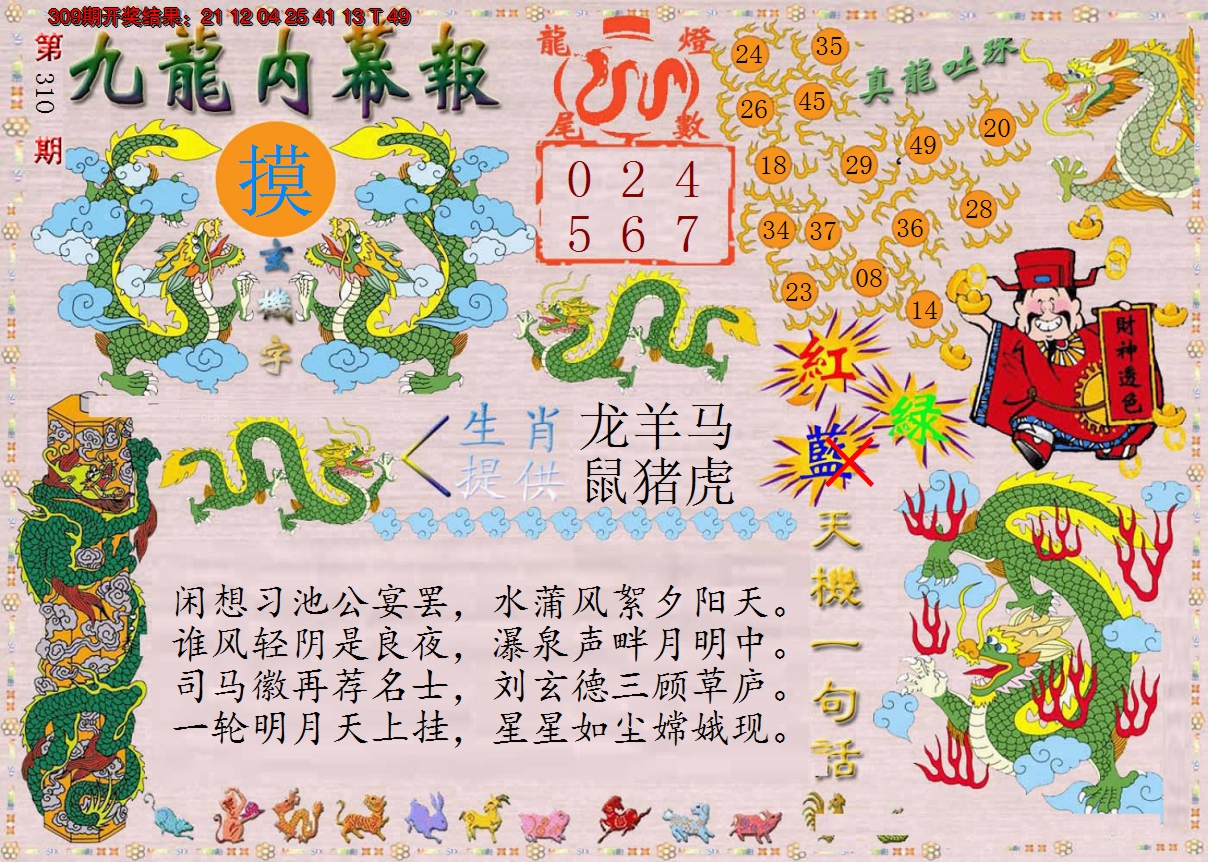 309期开奖结果：21 12 04 25 41 13 T 49
第310期
九龍内幕報
摸
玄機字
龍燈
尾數
0 2 4
5 6 7
真龍吐珠
24
35
26
45
18
29
49
20
34
37
36
28
23
08
14
財神透色
紅
綠
藍
生肖
提供
龙羊马
鼠猪虎
天機一句话
闲想习池公宴罢，水蒲风絮夕阳天。
谁风轻阴是良夜，瀑泉声畔月明中。
司马徽再荐名士，刘玄德三顾草庐。
一轮明月天上挂，星星如尘嫦娥现。